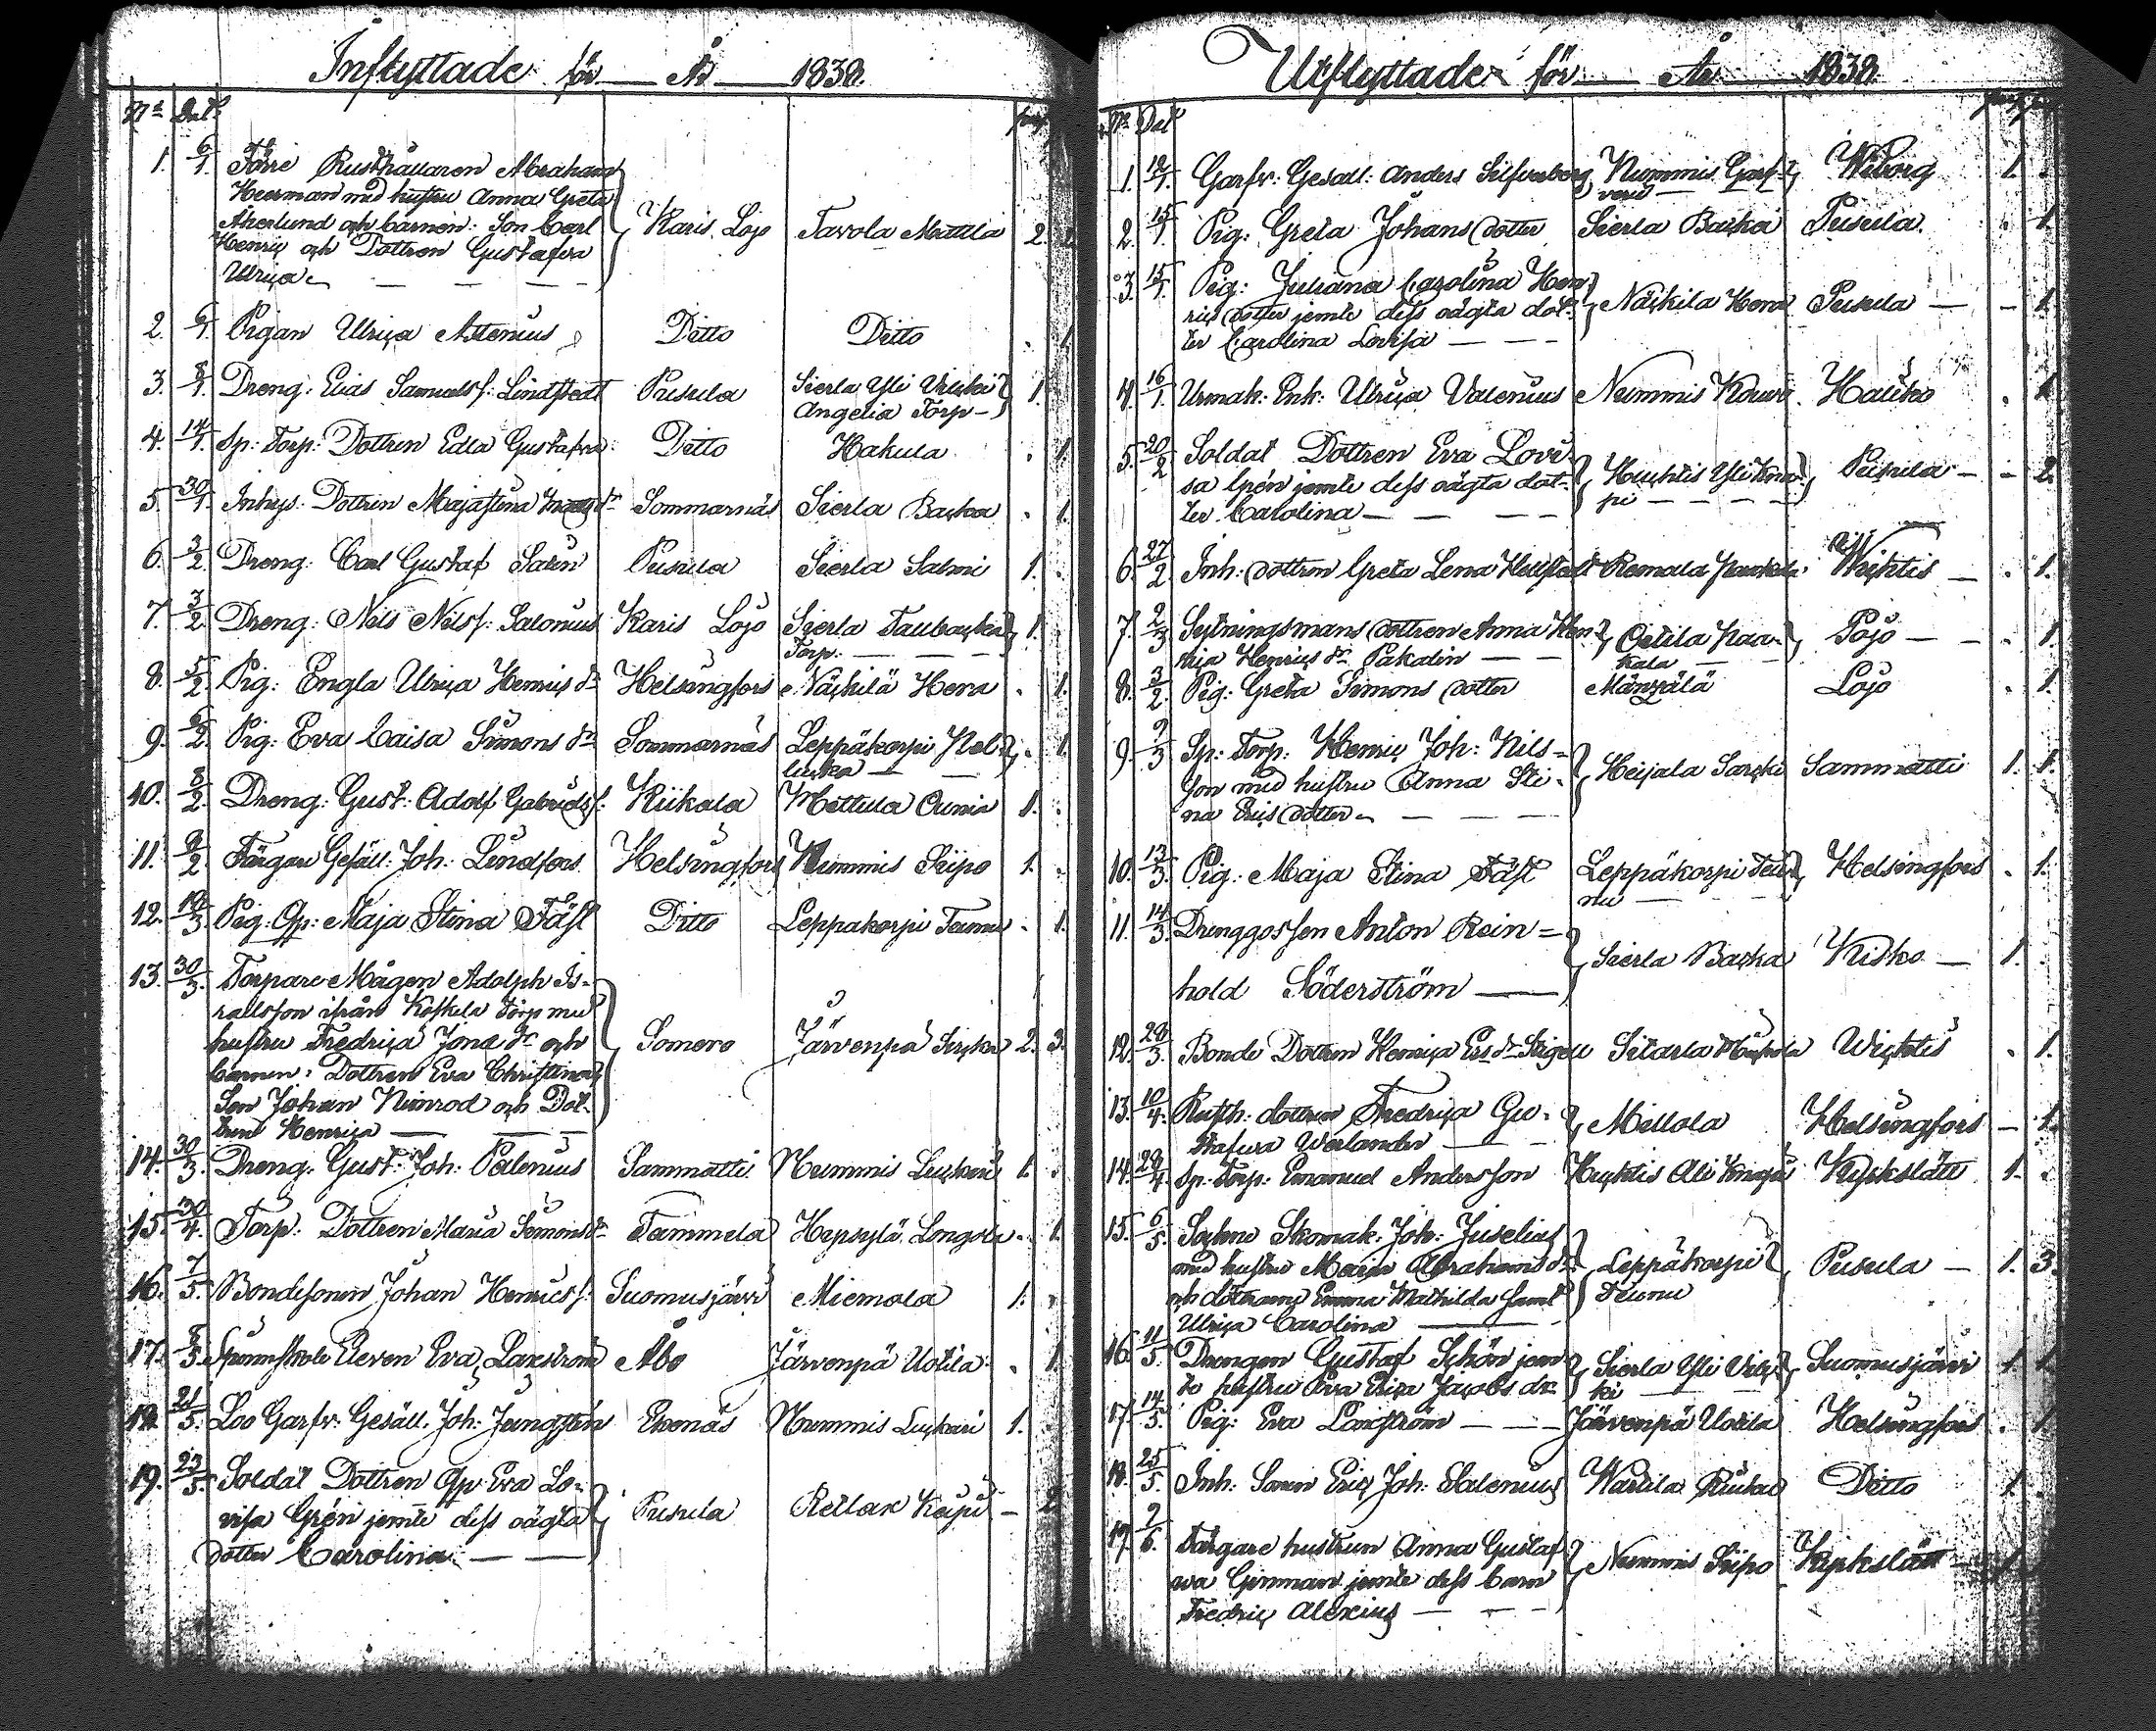 Inflyttade för År 1838.
Nº Dat.
1. 6/1. Förre Rusthållaren Abraham
Heerman med hustru Anna Greta
Åkerlund och barnen: Son Carl Karis Lojo Tavola Mattila 2.
Henric och Dottren Gustafva
Ulrica
2. 6/1. Pigan Ulrica Ditto Ditto . 1.
3. 8/1. Dreng: Elias Samuelss: Lindstedt Pusula Sierla Yli 1.
Torp
4. 14/1. Sp: Torp: Dottren Edla Gustafva Ditto Hakula . 1.
5. 30/1. Inhys. Dottren Majastina Sommarnäs Sierla Backa . 1.
6. 3/2. Dreng: Carl Gustaf Salin Pusula Sierla Salmi 1. .
7. 3/2. Dreng: Nils Nilss: Salonius Karis Lojo Sierla 1. .
Torp:
8. 5/2. Pig: Engla Ulrica Henrics dr Helsingfors Näckilä Hera . 1.
9. 6/2. Pig: Eva Caisa Simons dr Sommarnäs Leppäkorpi . 1.
10. 8/2. Dreng: Gust: Adolf Gabrielss: Kiikala Mettula 1. .
11. 9/2. Färgare Gesäll: Joh: Lindfors Helsingfors Nummis Siipo 1. .
12. Pig: Maja Stina Fäst Ditto Leppakorpi . 1.
13. 30/3. Torpare Mågen Adolph Is-
raelsson ifrån Koskela Torp med
hustru Fredrica Jona dr och Somero Järvenpä 2. 3.
barnen: Dottren Eva Christina,
Son Johan Nimrod och Dot-
tren Henrica
14. 30/3. Dreng: Gust: Joh: Palenius Sammatti Nummis Luckari 1. .
15. 30/4. Torp: Dottren Maria Simons dr Tammela Hepsylä . 1.
16. 7/5. Bondesonen Johan Henricss: Suomusjärvi Miemola 1. .
17. 8/5. Eleven Eva Laxström Åbo Järvenpä Uotila . 1.
18. 21/5. Garfv: Gesäll. Joh: Ekenäs Nummis Luckari 1. .
19. 23/5. Soldat Dottren Eva Lo-
visa jemte dess oägta Pusula 2.
Dotter Carolina
Utflyttade för År 1838.
Nº Dat.
1. Garfv: Gesäll: Anders Silfverberg Nummis Garf- Wiborg 1. .
veri
2. 15/1. Pig: Greta Johans dotter Sierla Backa Pusula . 1.
3. 15/1. Pig: Juliana Carolina Hen-
rics dotter jemte dess oägta dot- Näckila Hera Pusula - 1.
ter Carolina Lovisa
4. 16/1. Urmak: Enk: Ulrica Valenius Nummis Haliko . 1.
5. 20/2. Soldat Dottren Eva Lovi-
sa jemte dess oägta dot- Huchtis Yli Pusula - 2.
ter Carolina
6. 27/2. Inh: dottren Greta Lena Hellstedt Remala Wichtis . 1.
7. 2/3. Sytningsmans dottren Anna Hen- Oitila Haa- Pojo . 1.
rica Henrics dr Pakalin kala
8. 3/2. Pig: Greta Simons dotter Lojo . 1.
9. 9/3. Sp: Torp: Henric Joh: Nils=
son med hustru Anna Sti- Heijala Sammatti 1. 1.
na Erics dotter
10. 13/3. Pig: Maja Stina Fäst Leppäkorpi Helsingfors . 1.
11. 14/3. Drenggossen Anton Rein=
Sierla Backa Kisko 1. .
hold Söderström
12. 28/3. Bonde Dottren Henrica Wichtis . 1.
13. 10/4. Rusth: dottren Fredrica Gu- Millola Helsingfors - 1.
stafva Werlander
14. 28/4. Sp: Torp: Emanuel Andersson Huchtis Ali Kyrkslätt 1. .
15. 6/5. Sockne Skomak: Joh: Juselius
med hustru Maria Abrahams dr Leppäkorpi Pusula 1. 3.
och döttrarne Emma Mathilda samt Teunu
Ulrica Carolina
16. 11/5. Drengen Gustaf Schön jem- Sierla Yli Suomusjärvi 1. 1.
te hustru Eva Erica Jacobs dr
17. 14/5. Pig: Eva Laxström Järvenpä Uotila Helsingfors . 1.
18. 25/5. Inh: Sonen Eric Joh: Salenius Ditto 1.
19. 2/6. Färgare hustrun Anna Gustaf-
va jemte dess barn Nummis Siipo Kyrkslätt
Fredric Alexius